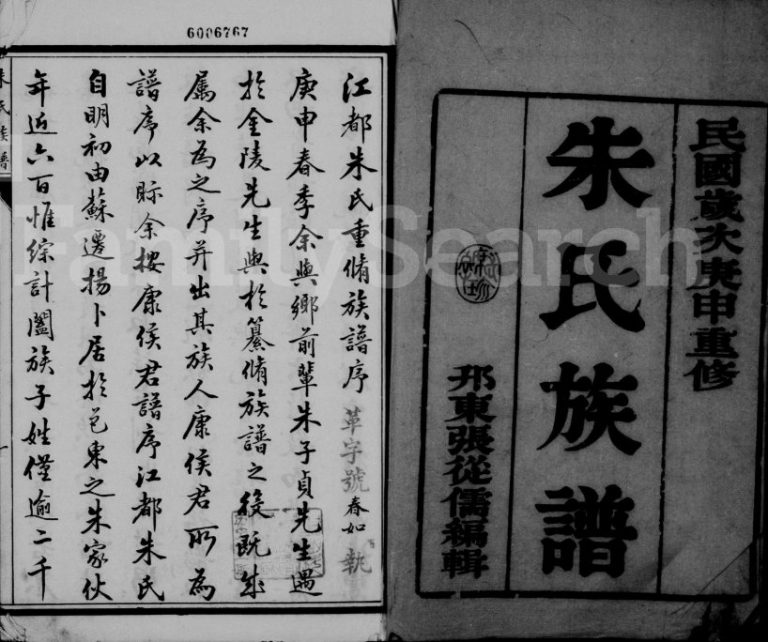 民國歲次庚申重修
朱氏族譜
邗東張從儒編輯
6006767
江都朱氏重脩族譜序 革字號 春如 執
庚申春季余與鄉前輩朱子貞先生遇
於金陵先生與於纂脩族譜之役既成
屬余為之序并出其族人康侯君所為
譜序以眎余按康侯君譜序江都朱氏
自明初由蘇遷揚卜居於邑東之朱家伙
年近六百惟綜計闔族子姓僅逾二千
朱氏族譜
FamilySearch